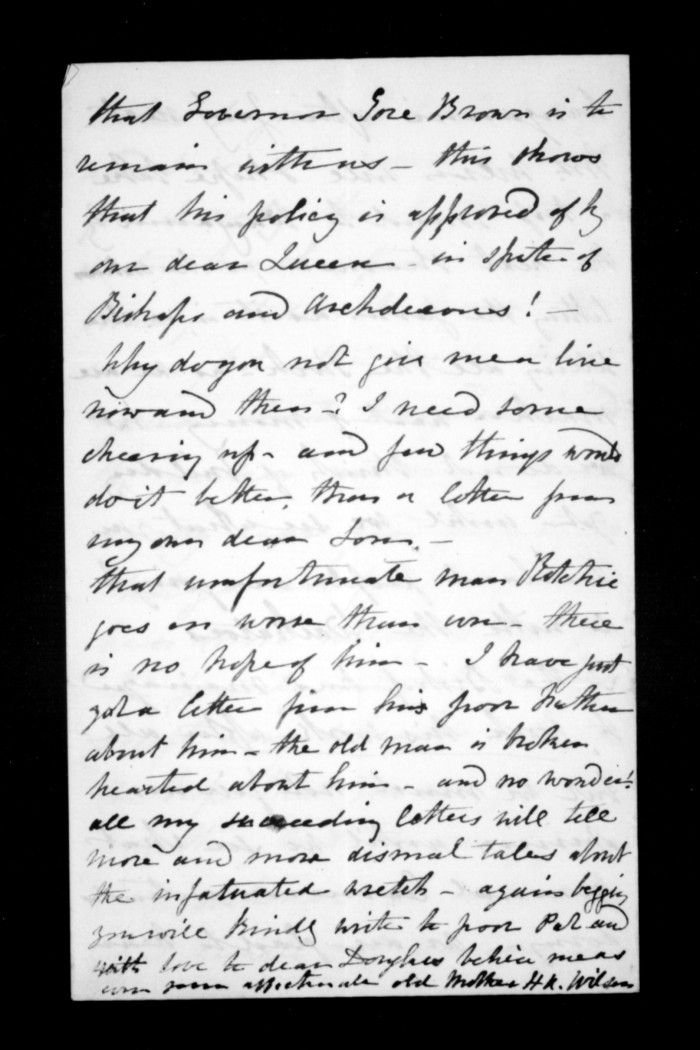 that Governor Gore Brown is to
remain with us – this shows
that his policy is approved of by
our dear Queen – in spite of
Bishops and Archdeacons! –
Why do you not give me a line
now and then? I need some
cheering up – and few things would
do it better, than a letter from
my own dear Son. –
that unfortunate man Ritchie
goes on worse than ever – there
is no hope of him – I have just
got a letter from his poor Father
about him – the old man is broken
hearted about him – and no wonder!
all my succeeding letters will tell
more and more dismal tales about
the infatuated wretch – again begging
you will kindly write to poor Pat and
with love to dear Douglas believe me as
ever your affectionate old Mother H K. Wilson